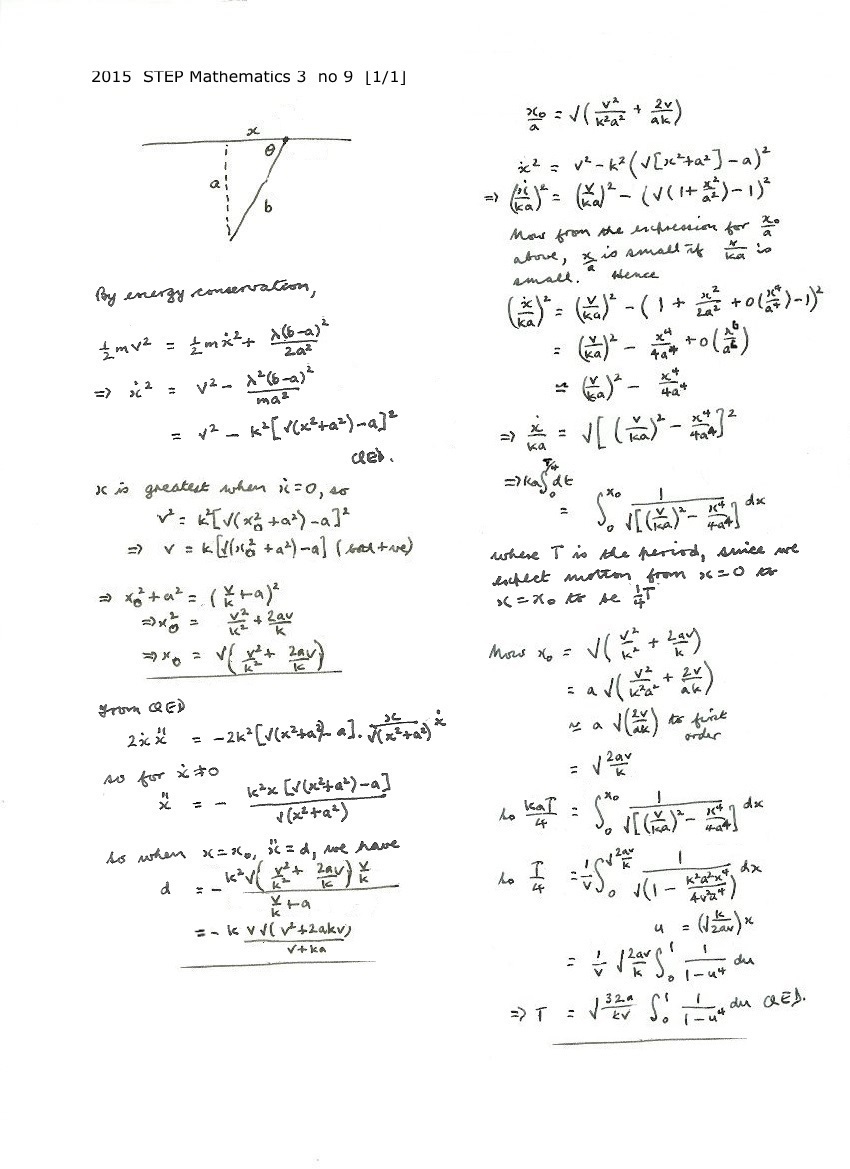 2015 STEP Mathematics 3 no 9 [1/1]
x
θ
a
b
By energy conservation,
½mv² = ½mẋ² + λ(b-a)²/2a²
⇒ ẋ² = v² - λ²(b-a)²/ma²
= v² - k²[√(x²+a²)-a]²
QED.
x is greatest when ẋ=0, so
v² = k²[√(x₀²+a²)-a]²
⇒ v = k[√(x₀²+a²)-a] (both +ve)
⇒ x₀²+a² = (v/k+a)²
⇒ x₀² = v²/k² + 2av/k
⇒ x₀ = √(v²/k² + 2av/k)
From QED
2ẋẍ = -2k²[√(x²+a²)-a]. x/√(x²+a²) ẋ
so for ẋ≠0
ẍ = - k²x[√(x²+a²)-a]/√(x²+a²)
So when x=x₀, ẍ=d, we have
d = - k²√(v²/k² + 2av/k) v/k / (v/k+a)
= - k v√(v²+2akv)/(v+ka)
x₀/a = √(v²/k²a² + 2v/ak)
ẋ² = v² - k²(√[x²+a²]-a)²
⇒ (ẋ/ka)² = (v/ka)² - (√(1+x²/a²)-1)²
Now from the expression for x₀/a
above, x/a is small if v/ka is
small. Hence
(ẋ/ka)² = (v/ka)² - (1 + x²/2a² + o(x⁴/a⁴)-1)²
= (v/ka)² - x⁴/4a⁴ + o(x⁶/a⁶)
≈ (v/ka)² - x⁴/4a⁴
⇒ ẋ/ka = √[(v/ka)² - x⁴/4a⁴]²
⇒ ka∫₀^{T/4} dt
= ∫₀^{x₀} 1/√[(v/ka)² - x⁴/4a⁴] dx
where T is the period, since we
expect motion from x=0 to
x=x₀ to be ¼T
Now x₀ = √(v²/k² + 2av/k)
= a√(v²/k²a² + 2v/ak)
≈ a√(2v/ak) to first
order
= √2av/k
So kaT/4 = ∫₀^{x₀} 1/√[(v/ka)² - x⁴/4a⁴] dx
So T/4 = 1/v ∫₀^{√2av/k} 1/√(1 - k²a²x⁴/4v²a⁴) dx
u = (√k/2av)x
= 1/v √2av/k ∫₀¹ 1/1-u⁴ du
⇒ T = √32a/kv ∫₀¹ 1/1-u⁴ du QED.